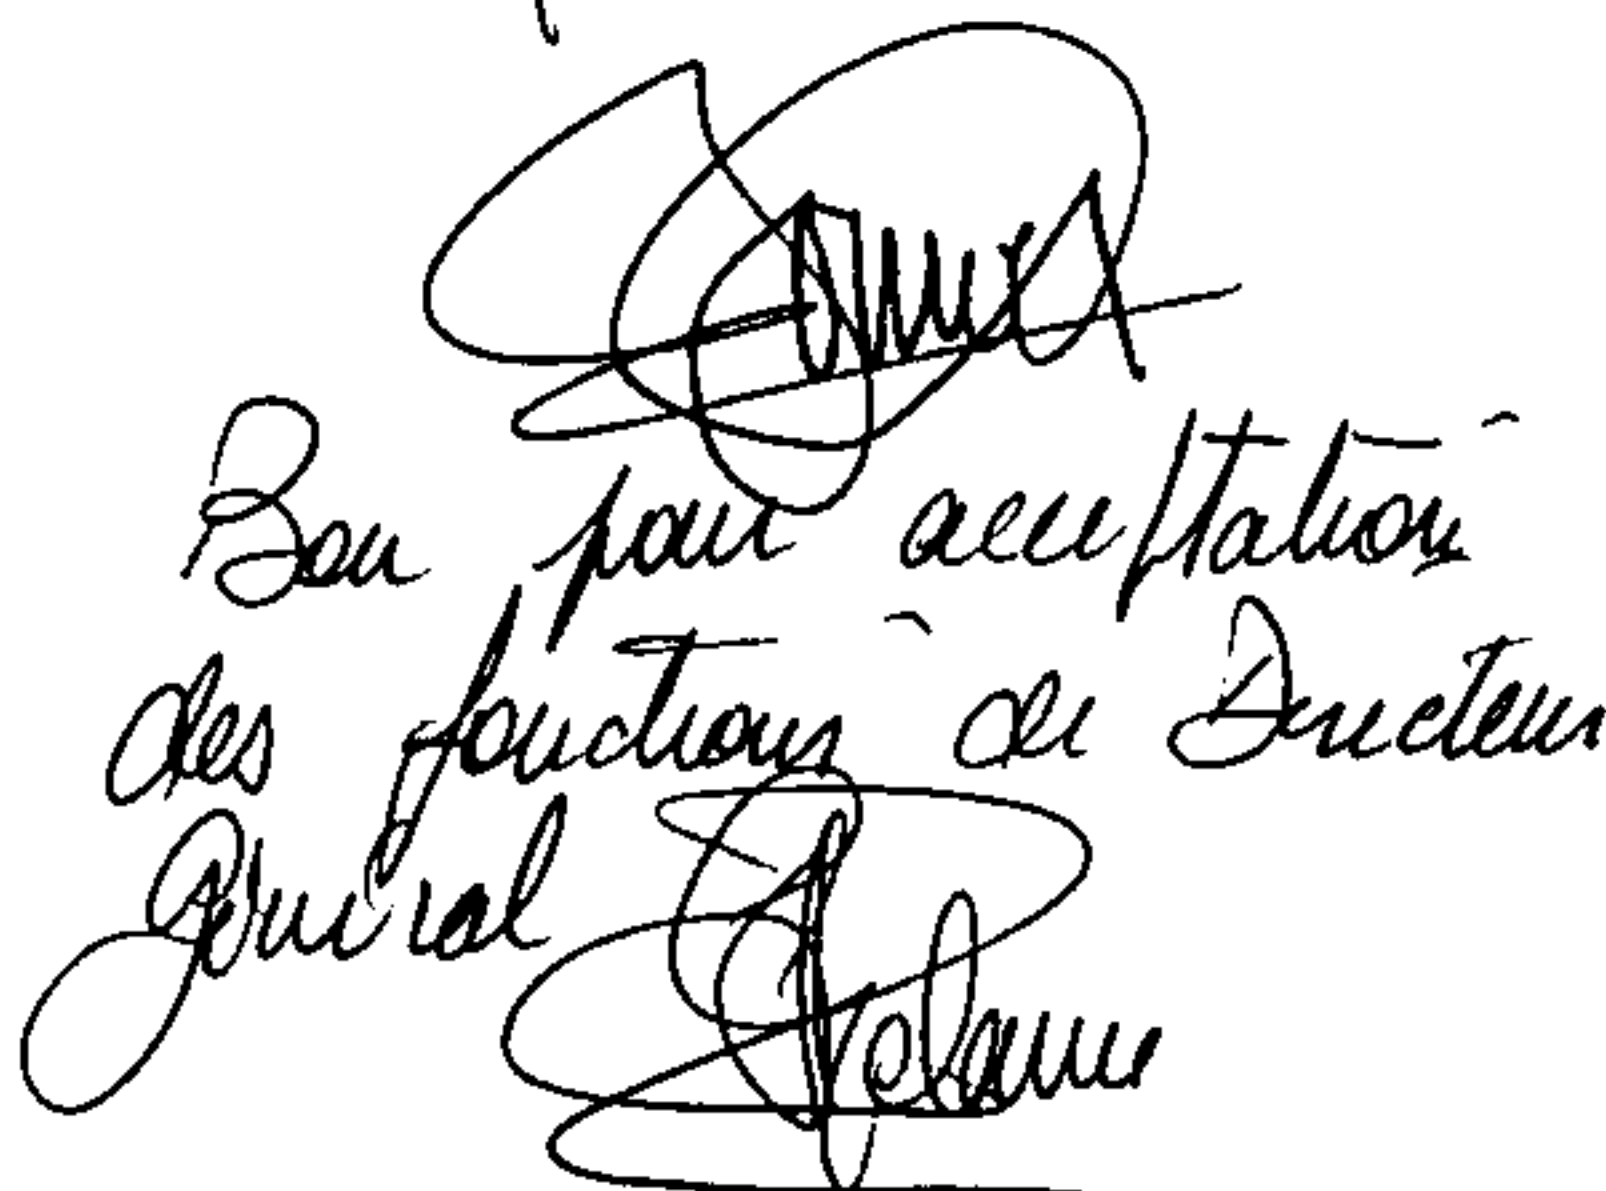 Bon pour acceptation
des fonctions de Directeur
général